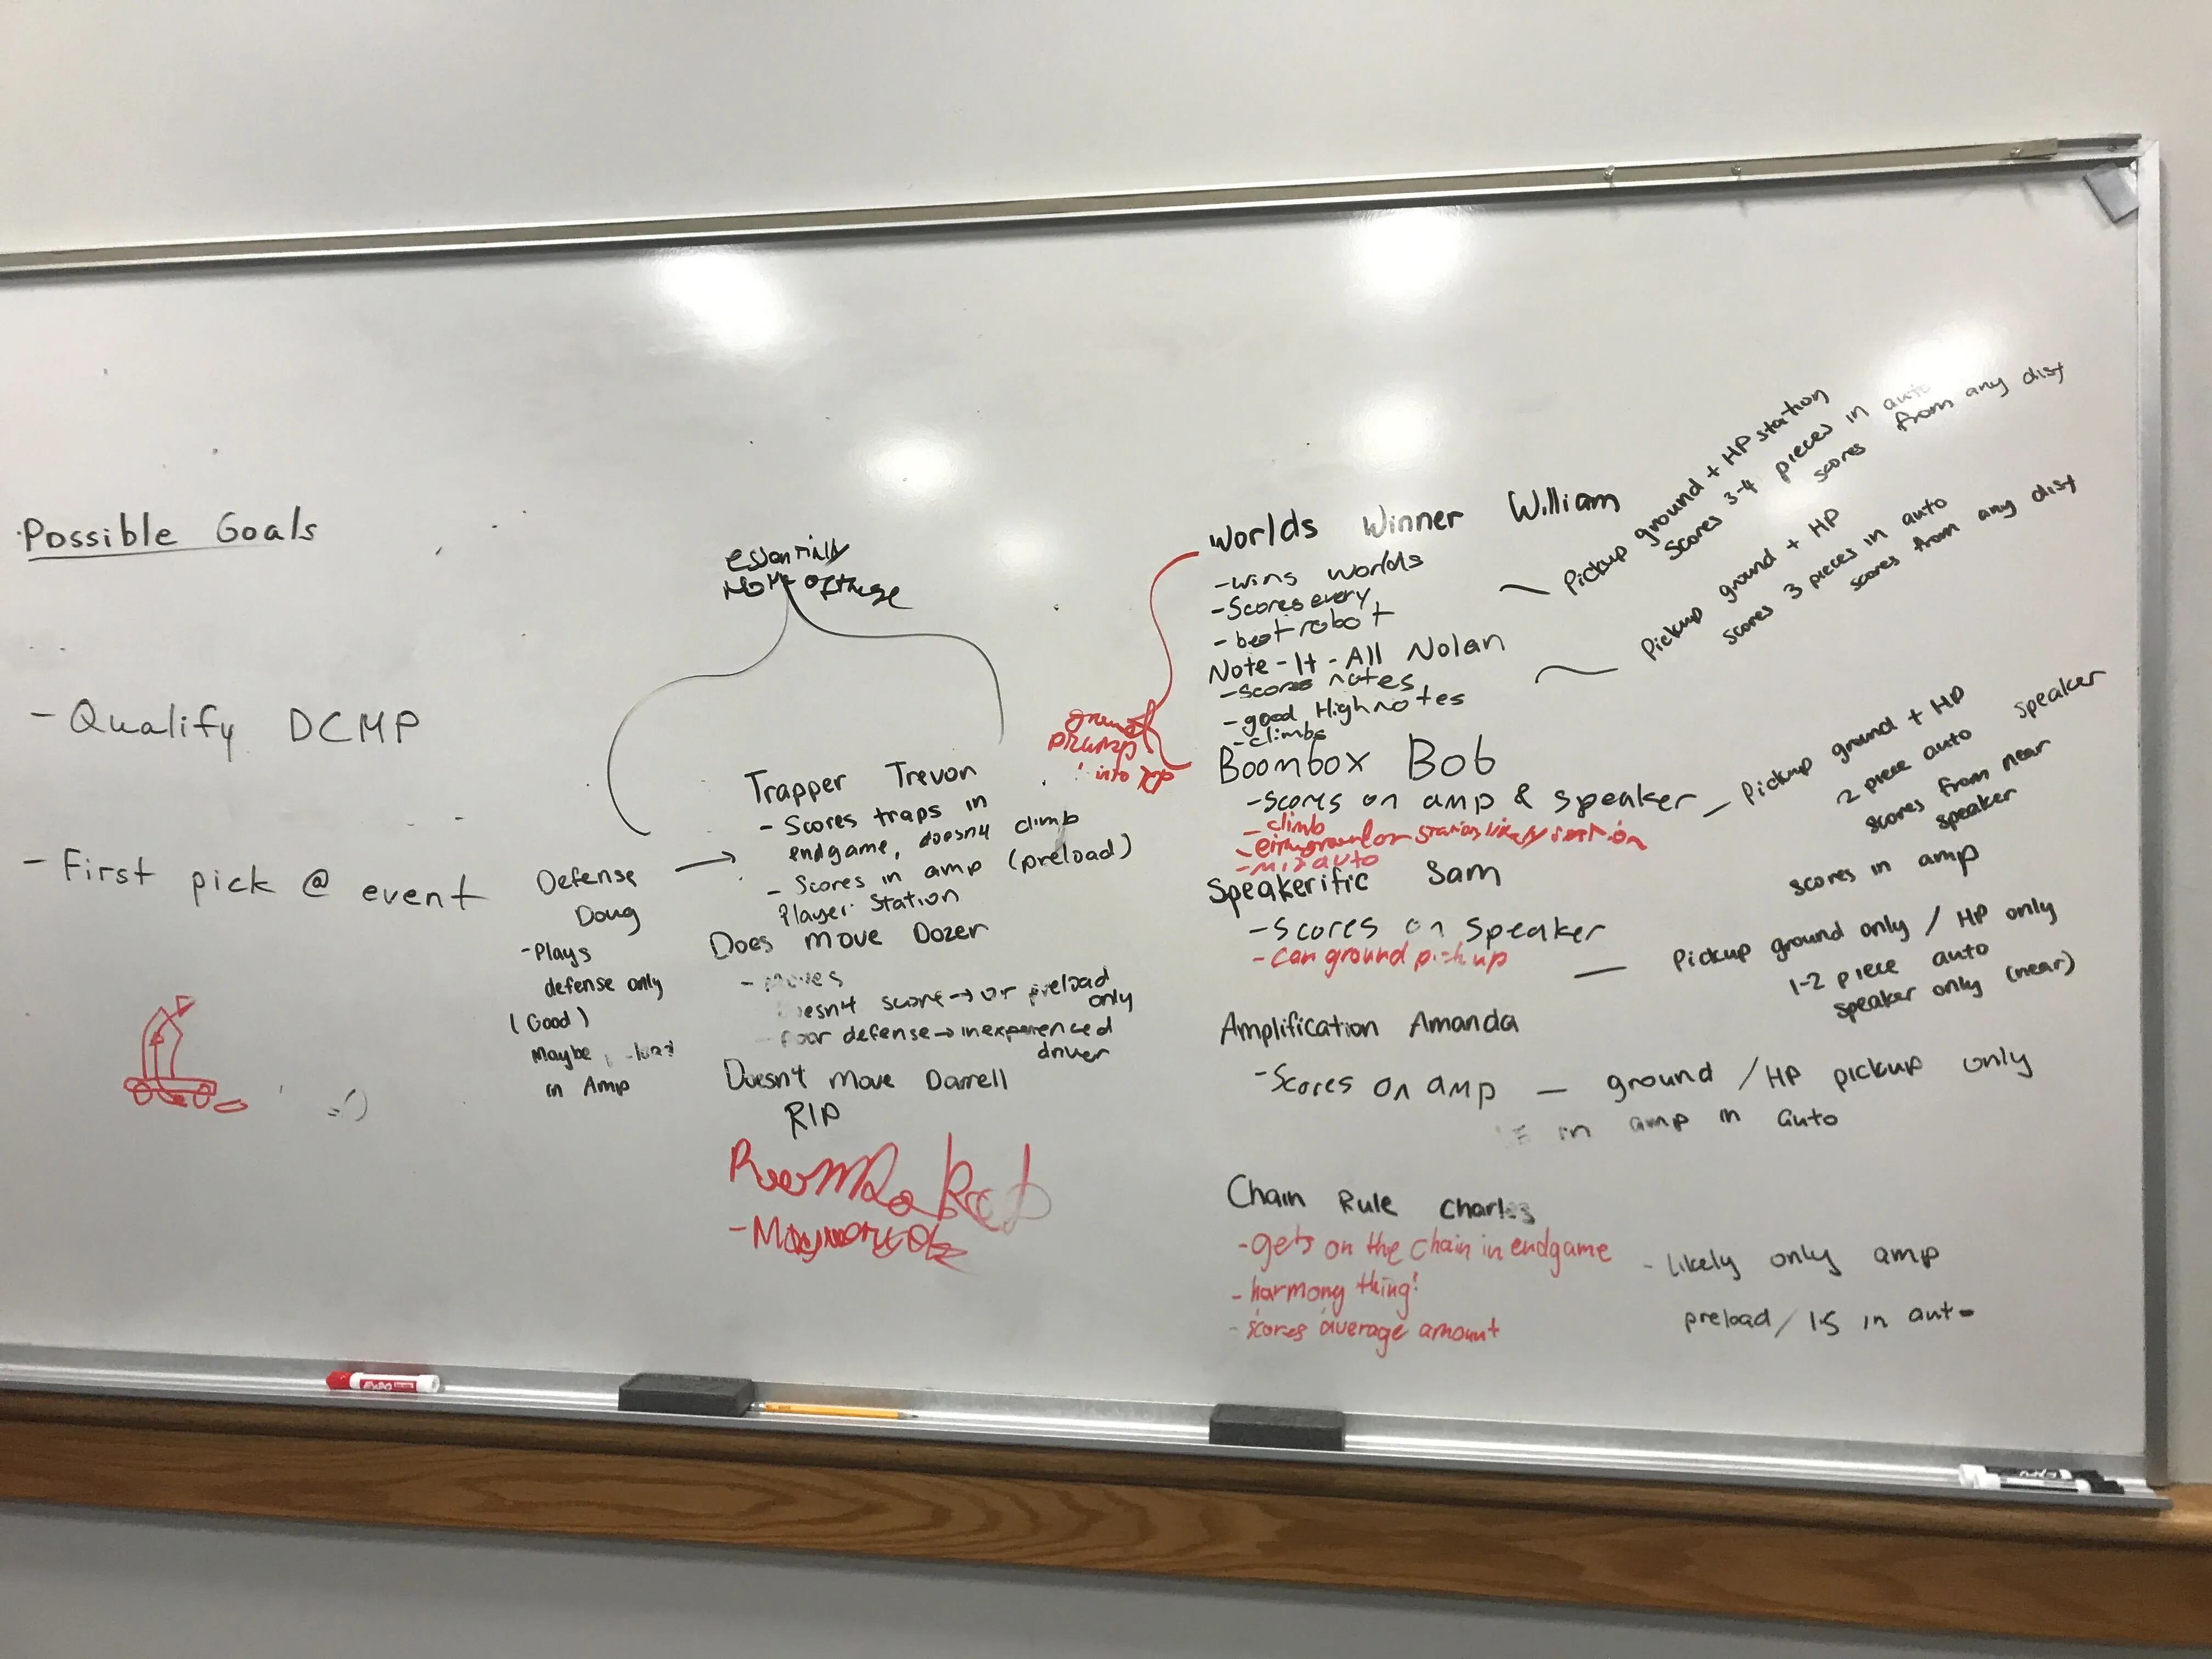 Possible Goals
- Qualify DCMP
- First pick @ event
=')
essentially
none of these
Defense
Doug
- Plays
defense only
(Good)
Maybe
in Amp
Trapper Trevon
- Scores traps in
endgame, doesn't climb
- Scores in amp (preload)
Player Station
Does move Dozer
- moves
doesn't score → or preload
only
- poor defense → inexperienced
driver
Doesn't Move Darrell
RIP
ground
into
Worlds Winner William
- wins worlds
- Scores every
- best robot
Pickup ground + HP station
Scores 3-4 pieces in auto
scores from any dist
Note-It-All Nolan
- scores notes
- good High notes
- climbs
Pickup ground + HP
scores 3 pieces in auto
scores from any dist
Boombox Bob
- scores on amp & speaker
- climb
- auto
Pickup ground + HP
2 piece auto speaker
scores from near
speaker
scores in amp
Speakerific Sam
- Scores on Speaker
- can ground pickup
Pickup ground only / HP only
1-2 piece auto
speaker only (near)
Amplification Amanda
- Scores on amp — ground / HP pickup only
in amp in auto
Chain Rule Charles
- gets on the chain in endgame
- harmony thing!
- scores average amount
- likely only amp
preload / 1-S in auto
EXPO